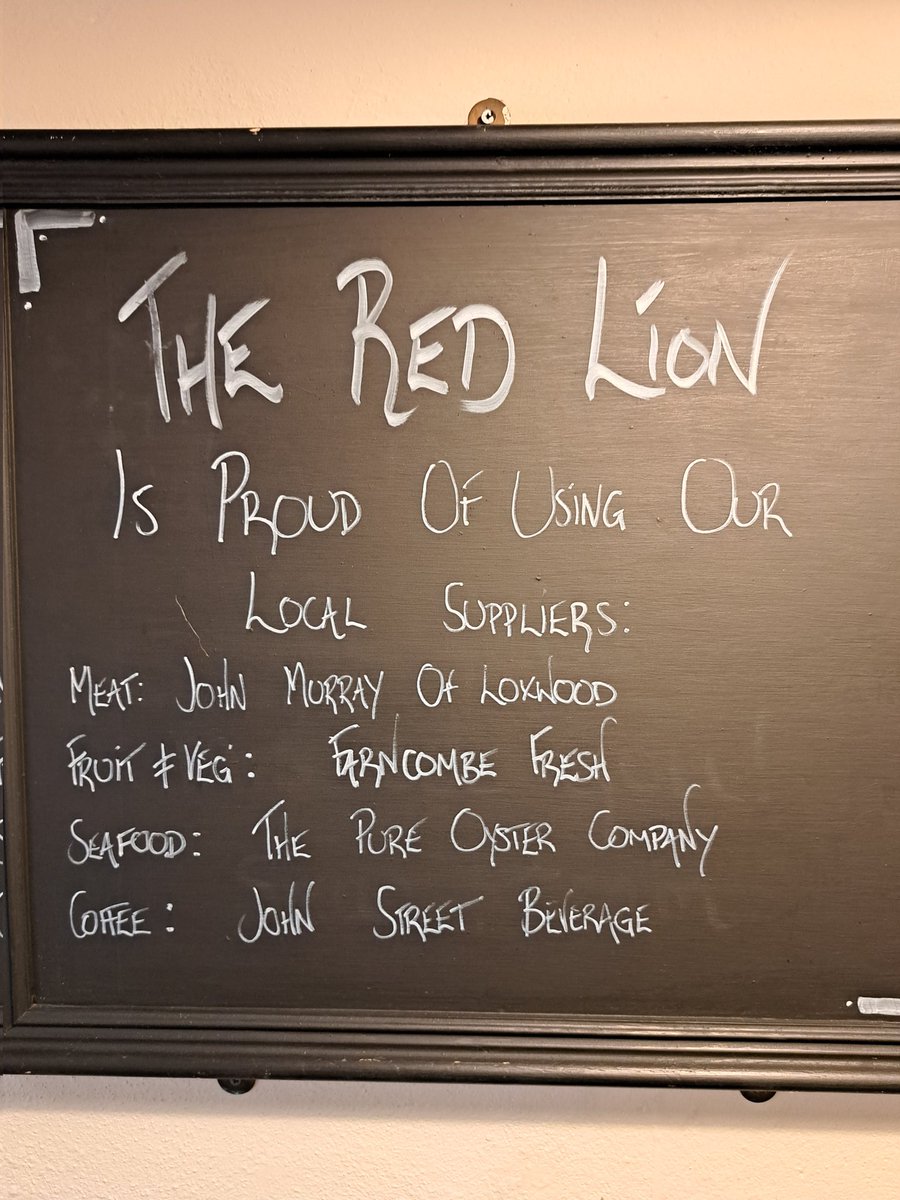 THE RED LION
IS PROUD OF USING OUR
LOCAL SUPPLIERS:
MEAT: JOHN MURRAY OF LOXWOOD
FRUIT & VEG: FARNCOMBE FRESH
SEAFOOD: THE PURE OYSTER COMPANY
COFFEE: JOHN STREET BEVERAGE